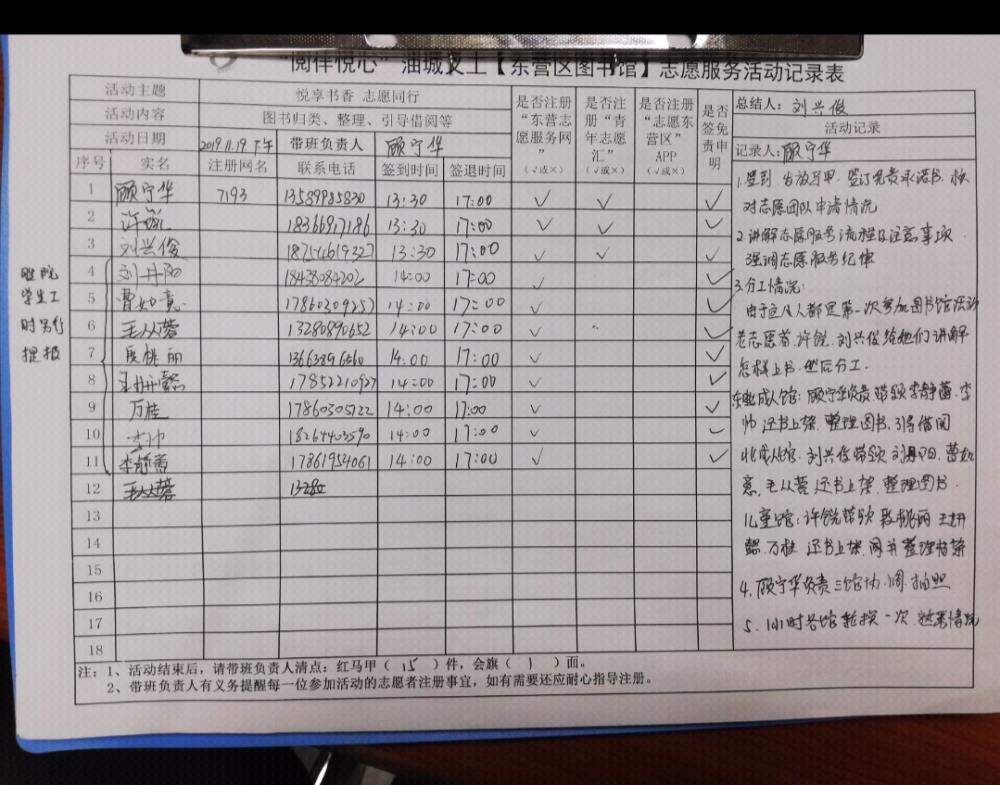 “阅伴悦心”油城义工【东营区图书馆】志愿服务活动记录表
活动主题 悦享书香 志愿同行
活动内容 图书归类、整理、引导借阅等
活动日期 2019.11.19 下午 带班负责人 顾宁华
序号 实名 注册网名 联系电话 签到时间 签退时间 是否注册“东营志愿服务网”（√或×） 是否注册“青年志愿汇”（√或×） 是否注册“志愿东营区”APP（√或×） 是否签免责申明
1 顾宁华 7193 13589985830 13:30 17:00 √ √ √
2 许 18366917186 13:30 17:00 √ √ √
3 刘兴俊 18754619327 13:30 17:00 √ √ √
4 刘丹阳 18438084202 14:00 17:00 √ √
5 曹如意 17860309257 14:00 17:00 √ √
6 毛从蓉 13280890652 14:00 17:00 √ √
7 段桃丽 14:00 17:00 √ √
8 王 17852210927 14:00 17:00 √ √
9 万桂 17860305122 14:00 17:00 √ √
10 李帅 18264403590 14:00 17:00 √ √
11 李静蕾 17861954061 14:00 17:00 √ √
12 毛从蓉 1328
13
14
15
16
17
18
学生工
时另行
提报
总结人：刘兴俊
活动记录
记录人：顾宁华
1.签到 发放马甲 签订免责承诺书
对志愿团队申请情况
2.讲解志愿服务流程及注意事项
强调志愿服务纪律
3.分工情况：
由于这八人都是第一次参加图书馆活动
老志愿者 许锐 刘兴俊给她们讲解
怎样上书 然后分工.
成人馆：顾宁华负责带领李静蕾.李
帅 还书上架 整理图书.引导借阅
北成人馆. 刘兴俊带领 刘丹阳. 曹如
意, 毛从蓉 还书上架, 整理图书.
儿童馆：许锐带领 段桃丽 王
万桂 还书上架 整理书架
4. 顾宁华负责三馆协调 拍照
5. 1小时各馆轮换一次
注：1、活动结束后，请带班负责人清点：红马甲（ 15 ）件，会旗（ 1 ）面。
2、带班负责人有义务提醒每一位参加活动的志愿者注册事宜，如有需要还应耐心指导注册。